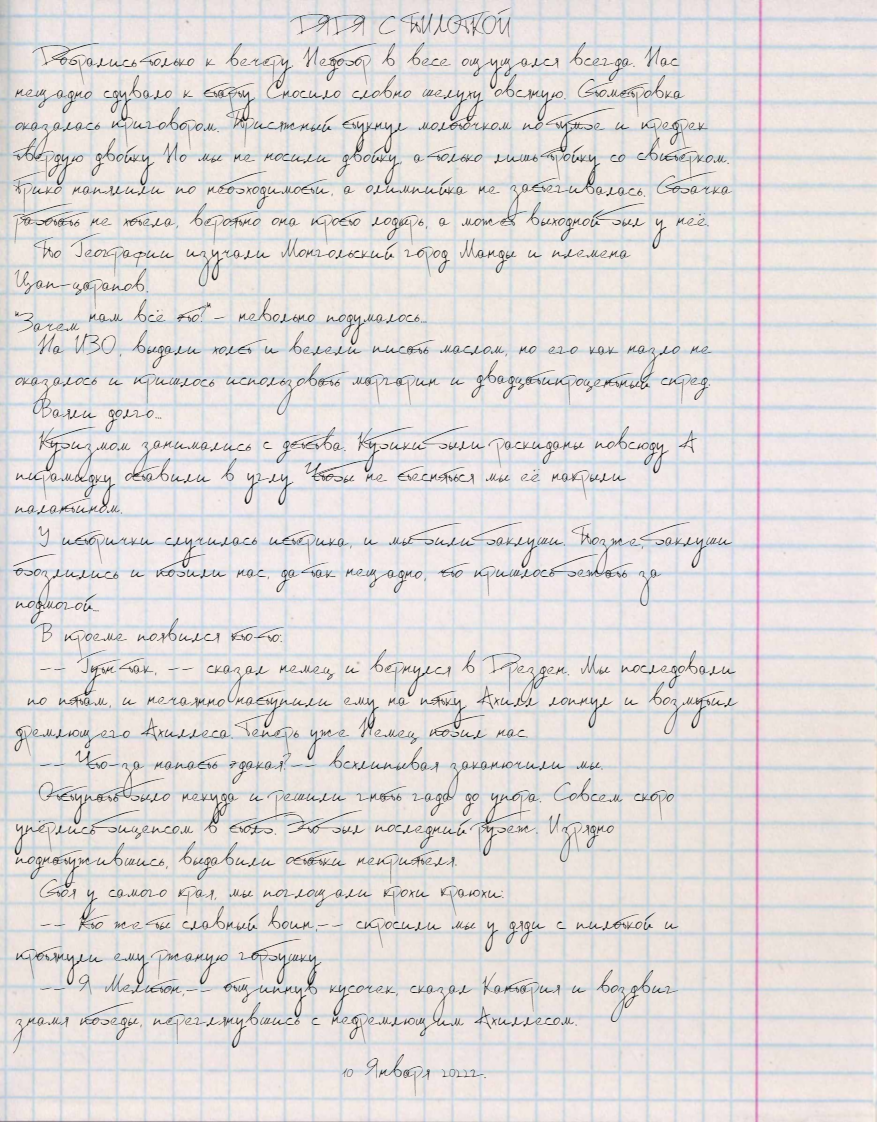 ДЯДЯ С ПИЛОТКОЙ
Добрались только к вечеру. Недобор в весе ощущался всегда. Нас
нещадно сдувало к старту. Сносило словно шелуху овсяную. Стометровка
оказалась приговором. Присяжный стукнул молоточком по тумбе и предрек
твердую двойку. Но мы не носили двойку, а только лишь тройку со свитерком.
Трико напялили по необходимости, а олимпийка не застегивалась. Собачка
работать не хотела, вероятно она просто лодырь, а может выходной был у неё.
По Географии изучали Монгольский город Манды и племена
Цап-царапов.
"Зачем нам всё это!" - невольно подумалось...
На ИЗО, выдали холст и велели писать маслом, но его как назло не
оказалось и пришлось использовать маргарин и двадцатипроцентный спред.
Ваяли долго...
Кубизмом занимались с детства. Кубики были раскиданы повсюду. А
пирамидку оставили в углу. Чтобы не стесняться мы её накрыли
палантином.
У исторички случилась истерика, и мы били баклуши. Позже, баклуши
обозлились и побили нас, да так нещадно, что пришлось бежать за
подмогой...
В проеме появился кто-то:
-- Гутен так, -- сказал немец и вернулся в Дрезден. Мы последовали
по пятам, и нечаянно наступили ему на пятку. Ахилл лопнул и возмутил
дремлющего Ахиллеса. Теперь уже Немец побил нас.
-- Что-за напасть эдакая? -- всхлипывая заканючили мы.
Отступать было некуда и решили гнать гада до упора. Совсем скоро
упёрлись бицепсом в стойло. Это был последний рубеж. Изрядно
поднатужившись, выдавили остатки неприятеля.
Стоя у самого края, мы поглощали крохи краюхи:
-- Кто же ты славный воин, -- спросили мы у дяди с пилоткой и
протянули ему ржаную горбушку.
-- Я Мелитон, -- отщипнув кусочек, сказал Кантария и воздвиг
знамя победы, переглянувшись с недремлющим Ахиллесом.
10 Января 2022г.